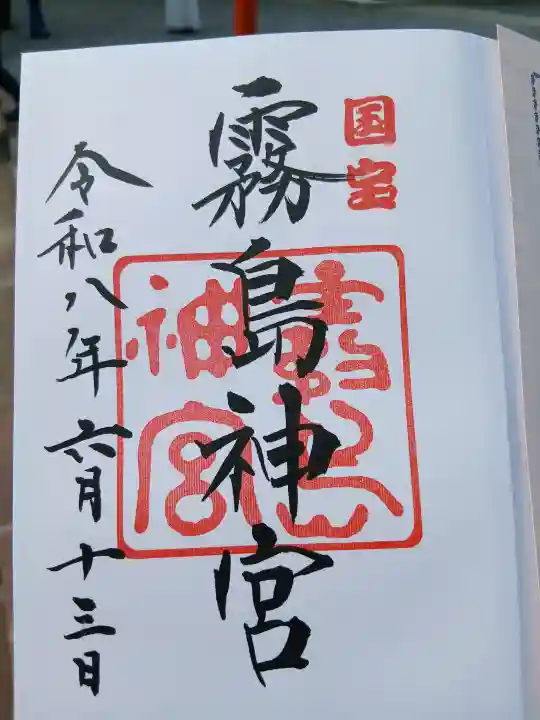 国宝
霧島神宮
霧島神宮
令和八年六月十三日